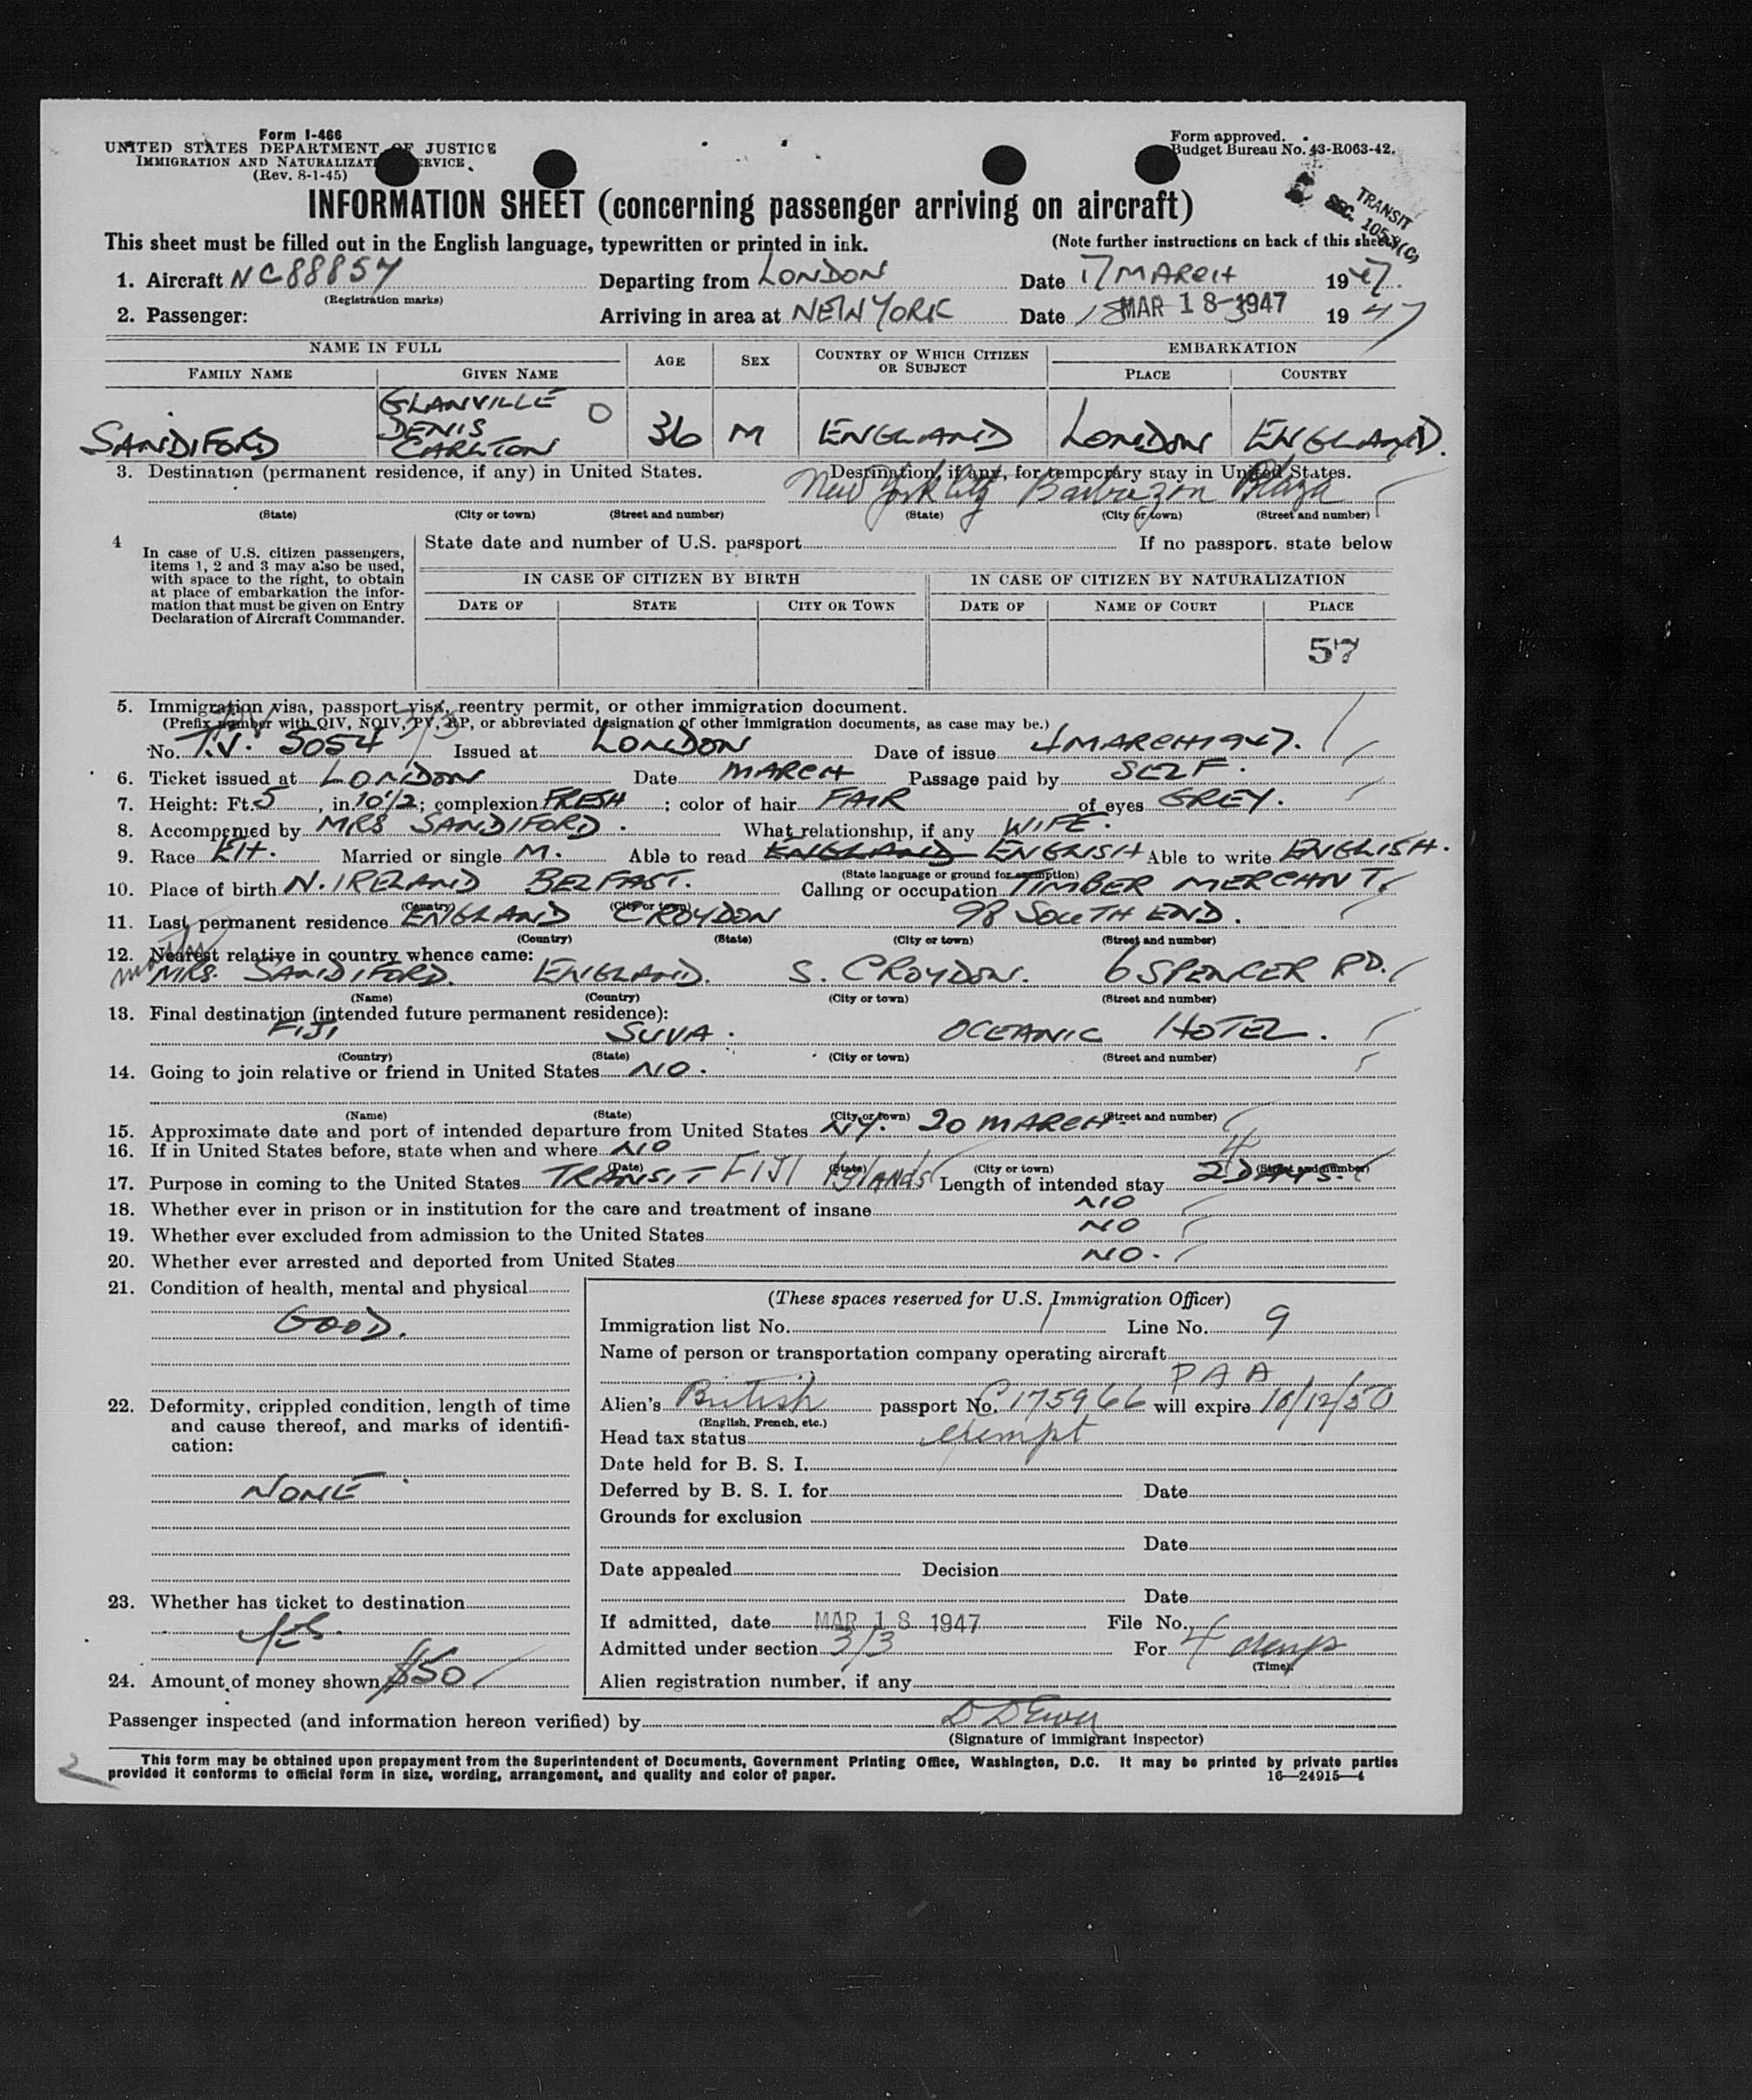 Form I-466
UNITED STATES DEPARTMENT OF JUSTICE
IMMIGRATION AND NATURALIZATION SERVICE
(Rev. 8-1-45)
Form approved.
Budget Bureau No. 43-R063-42.
TRANSIT
SEC. 105.3(C)
INFORMATION SHEET (concerning passenger arriving on aircraft)
This sheet must be filled out in the English language, typewritten or printed in ink. (Note further instructions on back of this sheet)
1. Aircraft NC88857 Departing from LONDON Date 17 MARCH 1947.
(Registration marks)
2. Passenger: Arriving in area at NEW YORK Date 18 MAR 18 1947 1947
NAME IN FULL AGE SEX COUNTRY OF WHICH CITIZEN OR SUBJECT EMBARKATION
FAMILY NAME GIVEN NAME PLACE COUNTRY
SANDIFORD GLANVILLE DENIS CARLTON 36 M ENGLAND LONDON ENGLAND.
3. Destination (permanent residence, if any) in United States. Destination, if any, for temporary stay in United States.
New York City Barbizon Plaza
(State) (City or town) (Street and number) (State) (City or town) (Street and number)
4 In case of U.S. citizen passengers, items 1, 2 and 3 may also be used, with space to the right, to obtain at place of embarkation the information that must be given on Entry Declaration of Aircraft Commander.
State date and number of U.S. passport If no passport, state below
IN CASE OF CITIZEN BY BIRTH IN CASE OF CITIZEN BY NATURALIZATION
DATE OF STATE CITY OR TOWN DATE OF NAME OF COURT PLACE
57
5. Immigration visa, passport visa, reentry permit, or other immigration document.
(Prefix number with QIV, NQIV, PV, RP, or abbreviated designation of other immigration documents, as case may be.)
No. T.V. 5054 3/3 Issued at LONDON Date of issue 4 MARCH 1947.
6. Ticket issued at LONDON Date MARCH Passage paid by SELF.
7. Height: Ft. 5, in. 10 1/2; complexion FRESH; color of hair FAIR of eyes GREY.
8. Accompanied by MRS SANDIFORD. What relationship, if any WIFE.
9. Race Married or single M. Able to read ENGLAND ENGLISH Able to write ENGLISH.
(State language or ground for exemption)
10. Place of birth N. IRELAND BELFAST. Calling or occupation TIMBER MERCHNT.
(Country) (City or town)
11. Last permanent residence ENGLAND CROYDON 98 SOUTH END.
(Country) (State) (City or town) (Street and number)
12. Nearest relative in country whence came:
mother MRS. SANDIFORD. ENGLAND. S. CROYDON. 6 SPENCER RD.
(Name) (Country) (City or town) (Street and number)
13. Final destination (intended future permanent residence):
FIJI SUVA. OCEANIC HOTEL.
(Country) (State) (City or town) (Street and number)
14. Going to join relative or friend in United States NO.
(Name) (State) (City or town) (Street and number)
15. Approximate date and port of intended departure from United States N.Y. 20 MARCH
16. If in United States before, state when and where NO
(Date) (State) (City or town) (Street and number)
17. Purpose in coming to the United States TRANSIT FIJI ISLANDS Length of intended stay 4 2 DAYS.
18. Whether ever in prison or in institution for the care and treatment of insane NO
19. Whether ever excluded from admission to the United States NO
20. Whether ever arrested and deported from United States NO.
21. Condition of health, mental and physical
GOOD.
22. Deformity, crippled condition, length of time and cause thereof, and marks of identification:
NONE
23. Whether has ticket to destination
YES.
24. Amount of money shown $50
(These spaces reserved for U.S. Immigration Officer)
Immigration list No. 1 Line No. 9
Name of person or transportation company operating aircraft
PAA
Alien's British passport No. C175966 will expire 10/12/50
(English, French, etc.)
Head tax status exempt
Date held for B. S. I.
Deferred by B. S. I. for Date
Grounds for exclusion
Date
Date appealed Decision
Date
If admitted, date MAR 18 1947 File No.
Admitted under section 3/3 For 4 days
(Time)
Alien registration number, if any
Passenger inspected (and information hereon verified) by
(Signature of immigrant inspector)
This form may be obtained upon prepayment from the Superintendent of Documents, Government Printing Office, Washington, D.C. It may be printed by private parties
provided it conforms to official form in size, wording, arrangement, and quality and color of paper. 16—24915—4
2